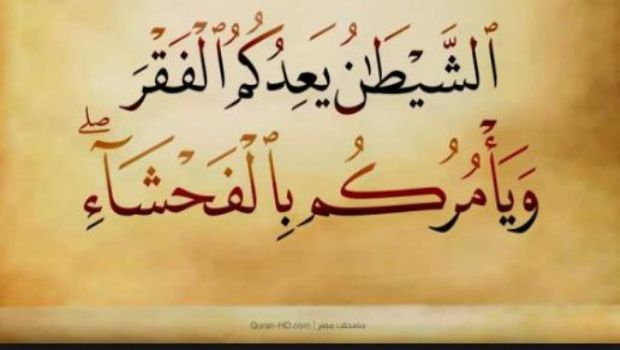 ٱلشَّيْطَٰنُ يَعِدُكُمُ ٱلْفَقْرَ
وَيَأْمُرُكُم بِٱلْفَحْشَآءِ ۖ
Quran-HD.com | مصحف مصر